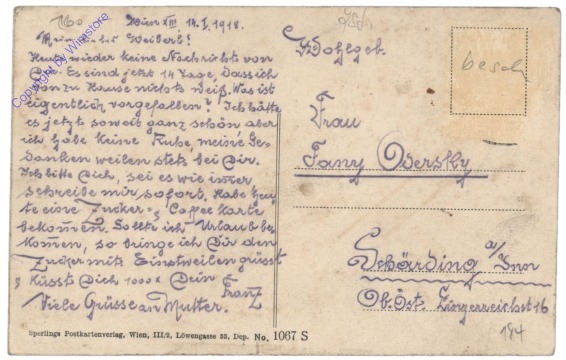 160
Wien XIII 14.I.1918.
Mein liebes Weiberl!
Heute wieder keine Nachricht von
Dir. Es sind jetzt 14 Tage, dass ich
von zu Hause nichts weiß. Was ist
eigentlich vorgefallen? Ich hätte
es jetzt soweit ganz schön aber
ich habe keine Ruhe, meine Ge-
danken weilen stets bei Dir.
Ich bitte Dich, sei es wie immer
schreibe mir sofort. Habe heu-
te eine Zucker- & Caffeekarte
bekommen. Sollte ich Urlaub be-
kommen, so bringe ich Dir den
Zucker mit. Einstweilen grüsst
& küsst Dich 1000x Dein
Franz
Viele Grüsse an Mutter.
Sperlings Postkartenverlag, Wien, III/2, Löwengasse 53, Dep. No. 1067 S
Wohlgeb.
Frau
Fany Odersky
Schärding a/Inn
Ob. Öst.
16
194
besch
Copyright by Wimstore